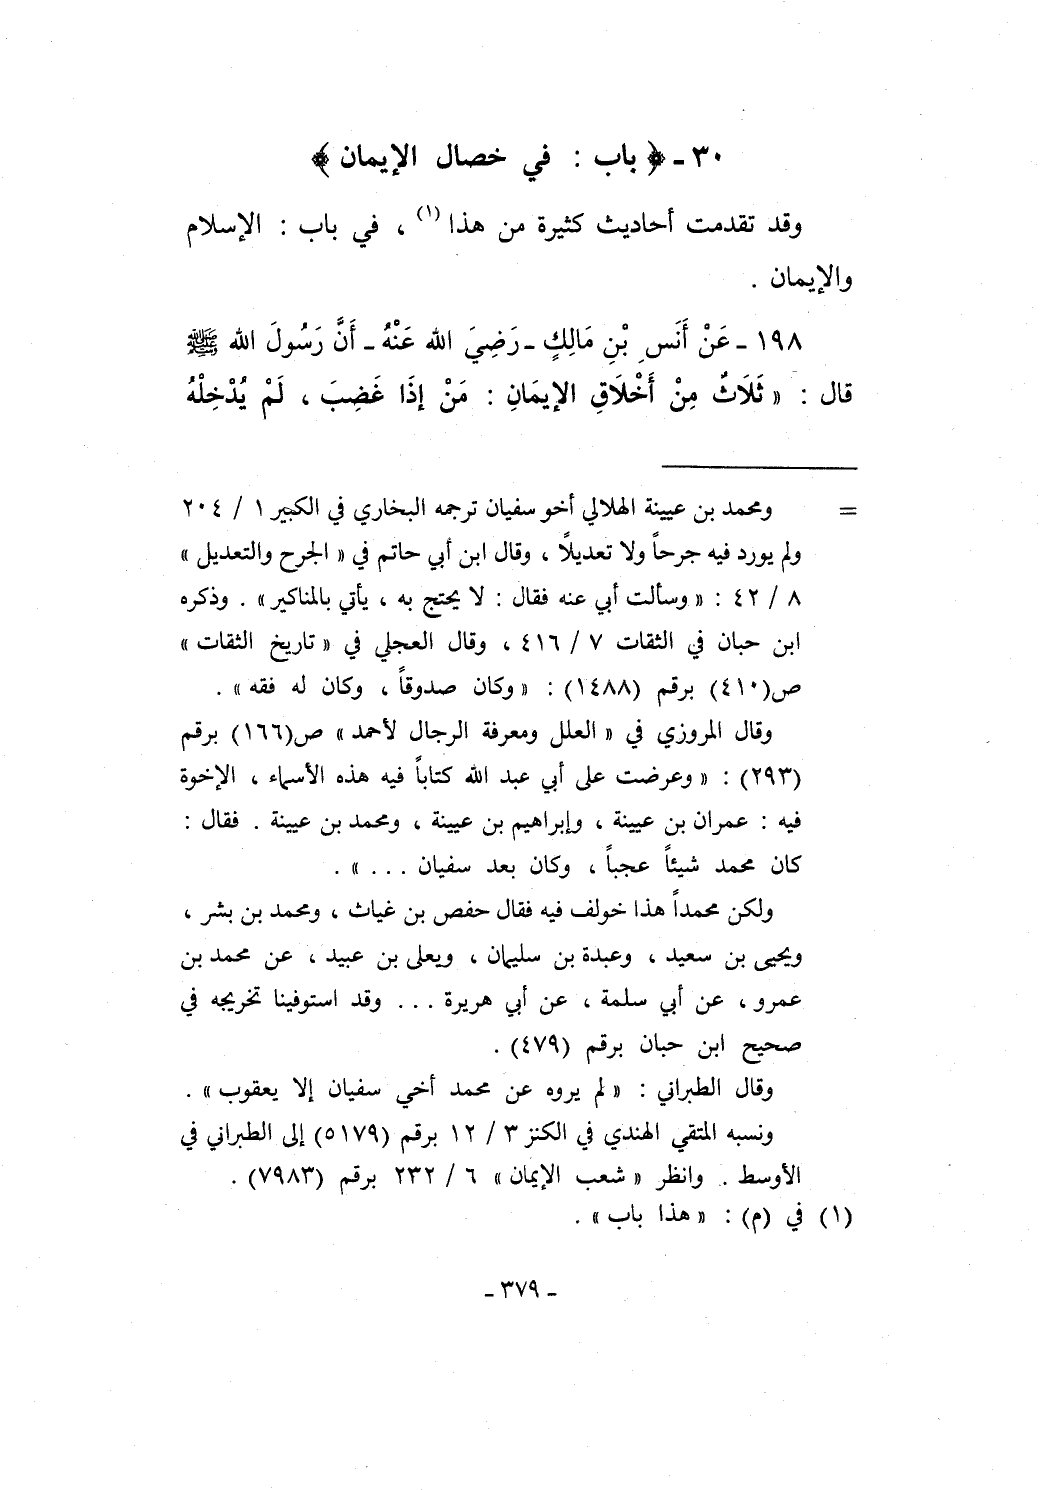 ٣٠ - ﴿ باب : في خصال الإيمان ﴾
وقد تقدمت أحاديث كثيرة من هذا (١) ، في باب : الإسلام
والإيمان .
١٩٨ - عَنْ أَنَسِ بْنِ مَالِكٍ - رَضِيَ الله عَنْهُ - أَنَّ رَسُولَ الله ﷺ
قال : « ثَلَاثٌ مِنْ أَخْلَاقِ الإيمَانِ : مَنْ إذَا غَضِبَ ، لَمْ يُدْخِلْهُ
= ومحمد بن عيينة الهلالي أخو سفيان ترجمه البخاري في الكبير ١ / ٢٠٤
ولم يورد فيه جرحاً ولا تعديلاً ، وقال ابن أبي حاتم في « الجرح والتعديل »
٨ / ٤٢ : « وسألت أبي عنه فقال : لا يحتج به ، يأتي بالمناكير » . وذكره
ابن حبان في الثقات ٧ / ٤١٦ ، وقال العجلي في « تاريخ الثقات »
ص(٤١٠) برقم (١٤٨٨) : « وكان صدوقاً ، وكان له فقه » .
وقال المروزي في « العلل ومعرفة الرجال لأحمد » ص(١٦٦) برقم
(٢٩٣) : « وعرضت على أبي عبد الله كتاباً فيه هذه الأسماء ، الإخوة
فيه : عمران بن عيينة ، وإبراهيم بن عيينة ، ومحمد بن عيينة . فقال :
كان محمد شيئاً عجباً ، وكان بعد سفيان . . . » .
ولكن محمداً هذا خولف فيه فقال حفص بن غياث ، ومحمد بن بشر ،
ويحيى بن سعيد ، وعبدة بن سليمان ، ويعلى بن عبيد ، عن محمد بن
عمرو ، عن أبي سلمة ، عن أبي هريرة . . . وقد استوفينا تخريجه في
صحيح ابن حبان برقم (٤٧٩) .
وقال الطبراني : « لم يروه عن محمد أخي سفيان إلا يعقوب » .
ونسبه المتقي الهندي في الكنز ٣ / ١٢ برقم (٥١٧٩) إلى الطبراني في
الأوسط . وانظر « شعب الإيمان » ٦ / ٢٣٢ برقم (٧٩٨٣) .
(١) في (م) : « هذا باب » .
- ٣٧٩ -